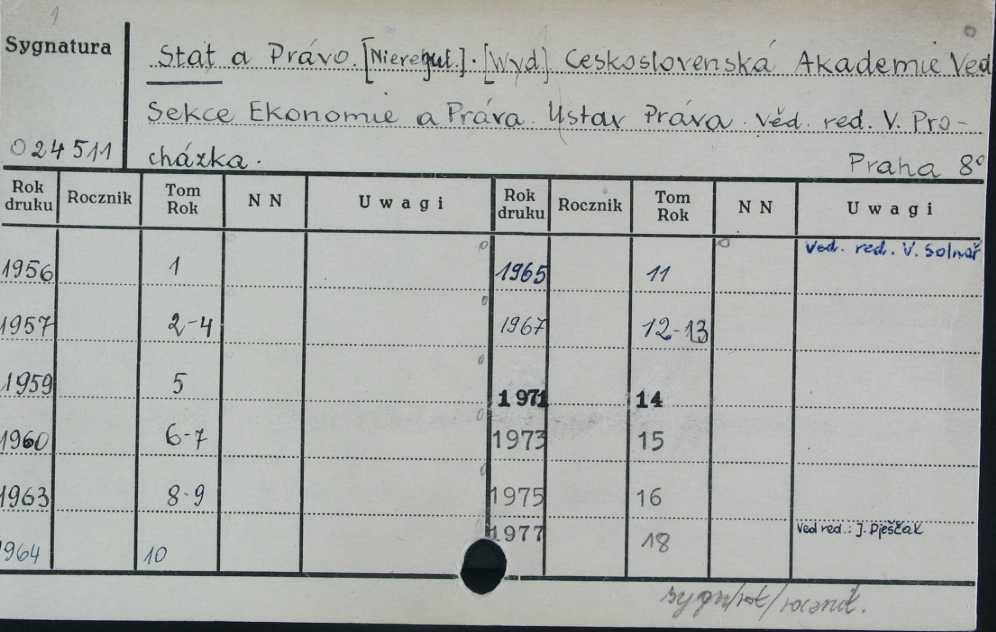 1
Sygnatura
Stat a Právo. [Nieregul.]. [Wyd] Československá Akademie Věd
Sekce Ekonomie a Práva. Ustav Práva. Věd. red. V. Pro-
024511 cházka. Praha 8°
Rok druku Rocznik Tom Rok NN Uwagi Rok druku Rocznik Tom Rok NN Uwagi
1956 1 1965 11 Ved. red. V. Solnař
1957 2-4 1967 12-13
1959 5 1971 14
1960 6-7 1973 15
1963 8-9 1975 16
1964 10 1977 18 Ved red.: J. Pješčak